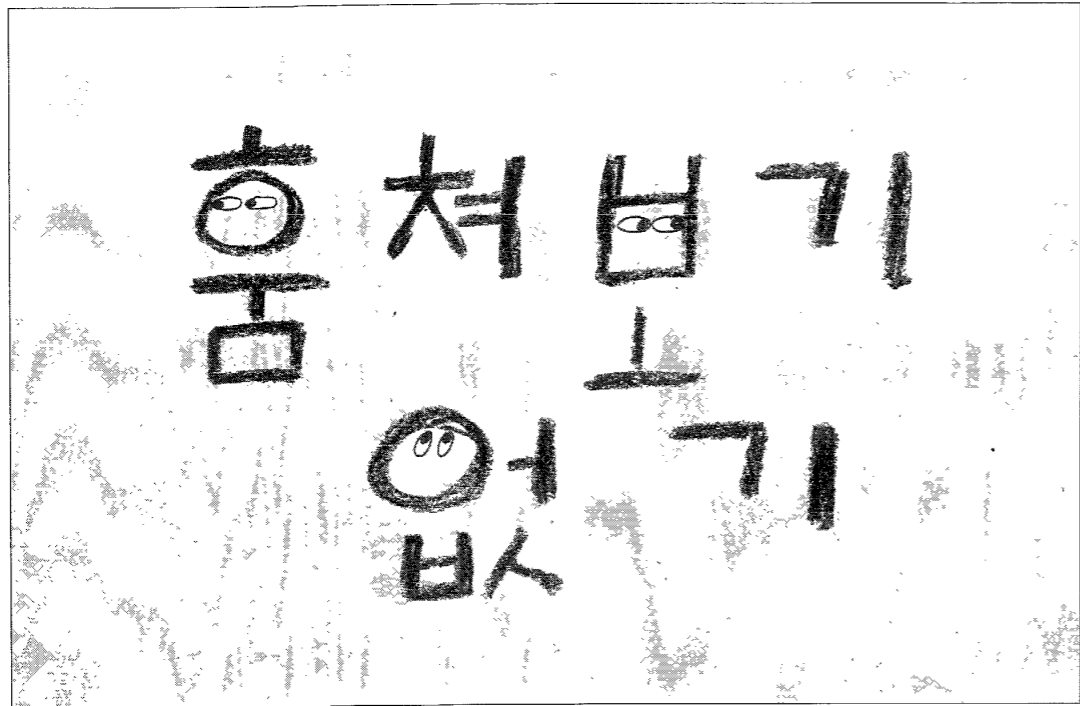 훔쳐보기
없기